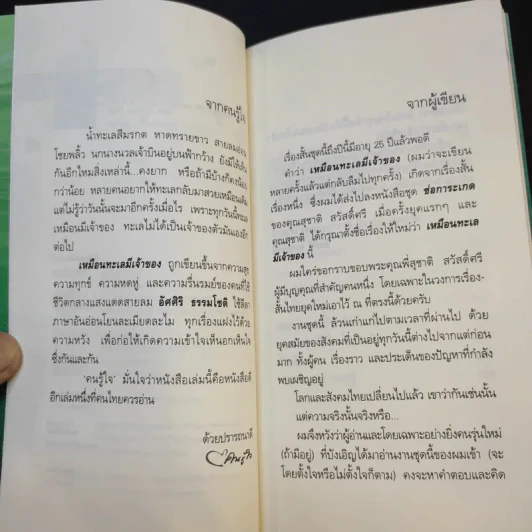 จากคนรู้ใจ
น้ำทะเลสีมรกต หาดทรายขาว สายลมอ่อน
โชยพลิ้ว นกนางนวลเจ้าบินอยู่บนฟ้ากว้าง ยังมีให้เห็น
กันอีกไหมสิ่งเหล่านี้...คงยาก หรือถ้ามีบ้างก็คงน้อย
กว่าน้อย หลายคนอยากให้ทะเลกลับมาสวยเหมือนเดิม
แต่ไม่รู้ว่าวันนั้นจะมาอีกครั้งเมื่อไร เพราะทุกวันนี้ทะเล
เหมือนมีเจ้าของ ทะเลไม่ได้เป็นเจ้าของตัวมันเองอีก
ต่อไป
เหมือนทะเลมีเจ้าของ ถูกเขียนขึ้นจากความสุข
ความทุกข์ ความหดหู่ และความรื่นรมย์ของคนที่ใช้
ชีวิตกลางแสงแดดสายลม อัศศิริ ธรรมโชติ ใช้
ภาษาอันอ่อนโยนละเมียดละไม ทุกเรื่องแฝงไว้ด้วย
ความหวัง เพื่อก่อให้เกิดความเข้าใจเห็นอกเห็นใจ
ซึ่งกันและกัน
'คนรู้ใจ' มั่นใจว่าหนังสือเล่มนี้คือหนังสือดี
อีกเล่มหนึ่งที่คนไทยควรอ่าน
ด้วยปรารถนาดี
คนรู้ใจ
จากผู้เขียน
เรื่องสั้นชุดนี้ถึงปีนี้มีอายุ 25 ปีแล้วพอดี
คำว่า เหมือนทะเลมีเจ้าของ (ผมว่าจะเขียน
หลายครั้งแล้วแต่กลับลืมไปทุกครั้ง) เกิดจากเรื่องสั้น
เรื่องหนึ่ง ซึ่งผมได้ส่งไปลงหนังสือชุด ช่อการะเกด
ของคุณสุชาติ สวัสดิ์ศรี เมื่อครั้งยุคแรกๆ และ
คุณสุชาติ ได้กรุณาตั้งชื่อเรื่องให้ใหม่ว่า เหมือนทะเล
มีเจ้าของ นี้
ผมใคร่ขอกราบขอบพระคุณพี่สุชาติ สวัสดิ์ศรี
ผู้มีบุญคุณที่สำคัญคนหนึ่ง โดยเฉพาะในวงการเรื่อง-
สั้นไทยยุคใหม่เอาไว้ ณ ที่ตรงนี้ด้วยครับ
งานชุดนี้ ล้วนเก่าแก่ไปตามเวลาที่ผ่านไป ด้วย
ยุคสมัยของสังคมที่เป็นอยู่ทุกวันนี้ต่างไปจากแต่ก่อน
มาก ทั้งผู้คน เรื่องราว และประเด็นของปัญหาที่กำลัง
พบเผชิญอยู่
โลกและสังคมไทยเปลี่ยนไปแล้ว เขาว่ากันเช่นนั้น
แต่ความจริงนั้นจริงหรือ...
ผมจึงหวังว่าผู้อ่านและโดยเฉพาะอย่างยิ่งคนรุ่นใหม่
(ถ้ามีอยู่) ที่บังเอิญได้มาอ่านงานชุดนี้ของผมเข้า (จะ
โดยตั้งใจหรือไม่ตั้งใจก็ตาม) คงจะหาคำตอบและคิด